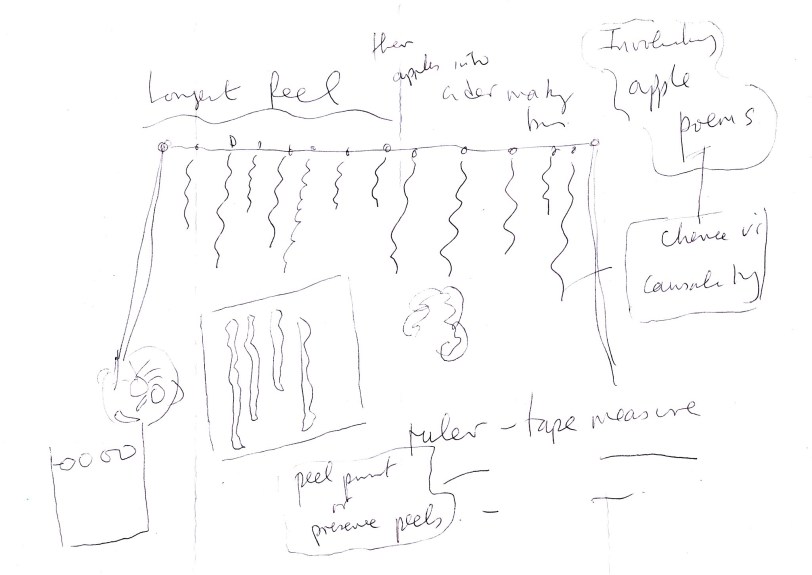 Longest Peel
then
apples into
cider making
Involving
apple
poems
chance vs
causality
ruler - tape measure
peel print
or
preserve peels